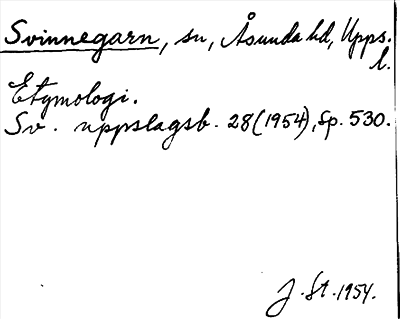 Svinnegarn, sn, Åsunda hd, Upps.
l.
Etymologi.
Sv. uppslagsb. 28(1954), sp. 530.
J. St. 1954.